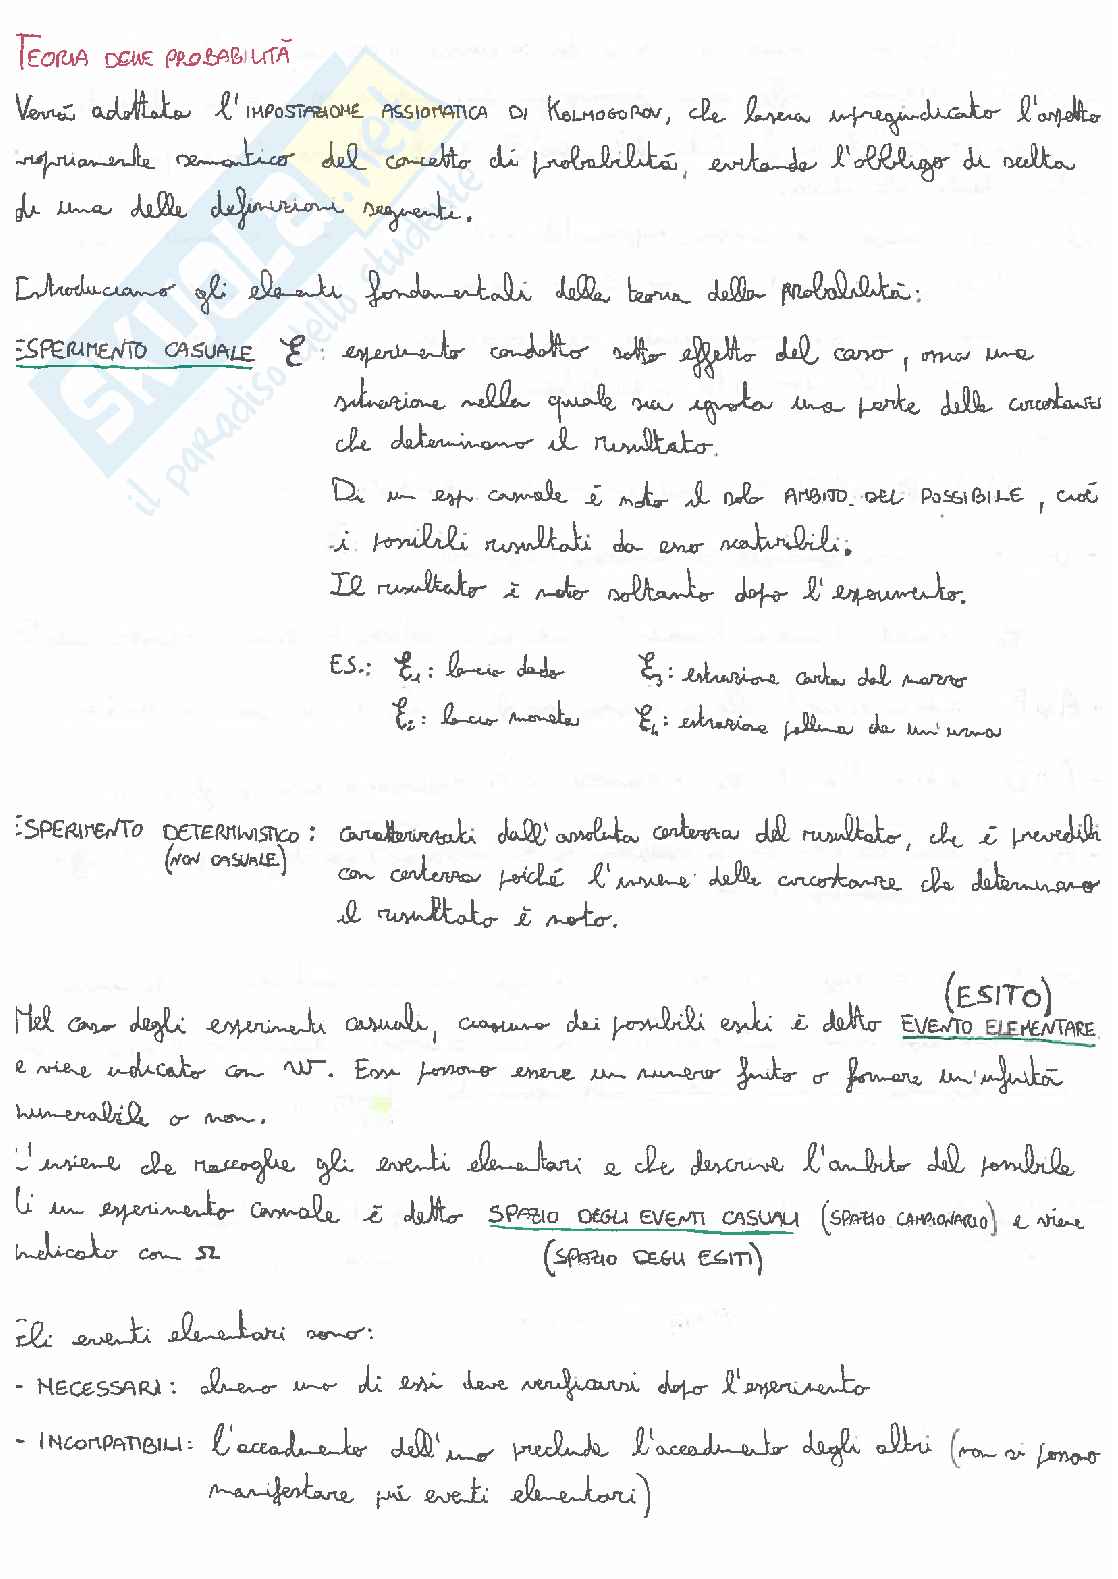 TEORIA DELLE PROBABILITÀ
Verrà adottata l'IMPOSTAZIONE ASSIOMATICA DI KOLMOGOROV, che lascia impregiudicato l'aspetto
propriamente semantico del concetto di probabilità, evitando l'obbligo di scelta
di una delle definizioni seguenti.
Introduciamo gli elementi fondamentali della teoria della probabilità:
ESPERIMENTO CASUALE ℰ: esperimento condotto sotto effetto del caso, ossia una
situazione nella quale sia ignota una parte delle circostanze
che determinano il risultato.
Di un esp. casuale è noto il solo AMBITO DEL POSSIBILE, cioè
i possibili risultati da esso scaturibili.
Il risultato è noto soltanto dopo l'esperimento.
ES.: ℰ1: lancio dado ℰ3: estrazione carta dal mazzo
ℰ2: lancio moneta ℰ4: estrazione pallina da un'urna
ESPERIMENTO DETERMINISTICO: caratterizzati dall'assoluta certezza del risultato, che è prevedibile
(NON CASUALE) con certezza poiché l'insieme delle circostanze che determinano
il risultato è noto.
(ESITO)
Nel caso degli esperimenti casuali, ciascuno dei possibili esiti è detto EVENTO ELEMENTARE
e viene indicato con w. Essi possono essere un numero finito o formare un'infinità
numerabile o non.
L'insieme che raccoglie gli eventi elementari e che descrive l'ambito del possibile
di un esperimento casuale è detto SPAZIO DEGLI EVENTI CASUALI (SPAZIO CAMPIONARIO) e viene
indicato con Ω (SPAZIO DEGLI ESITI)
Gli eventi elementari sono:
- NECESSARI: almeno uno di essi deve verificarsi dopo l'esperimento
- INCOMPATIBILI: l'accadimento dell'uno preclude l'accadimento degli altri (non si possono
manifestare più eventi elementari)
SKUOLA.net
il paradiso dello studente